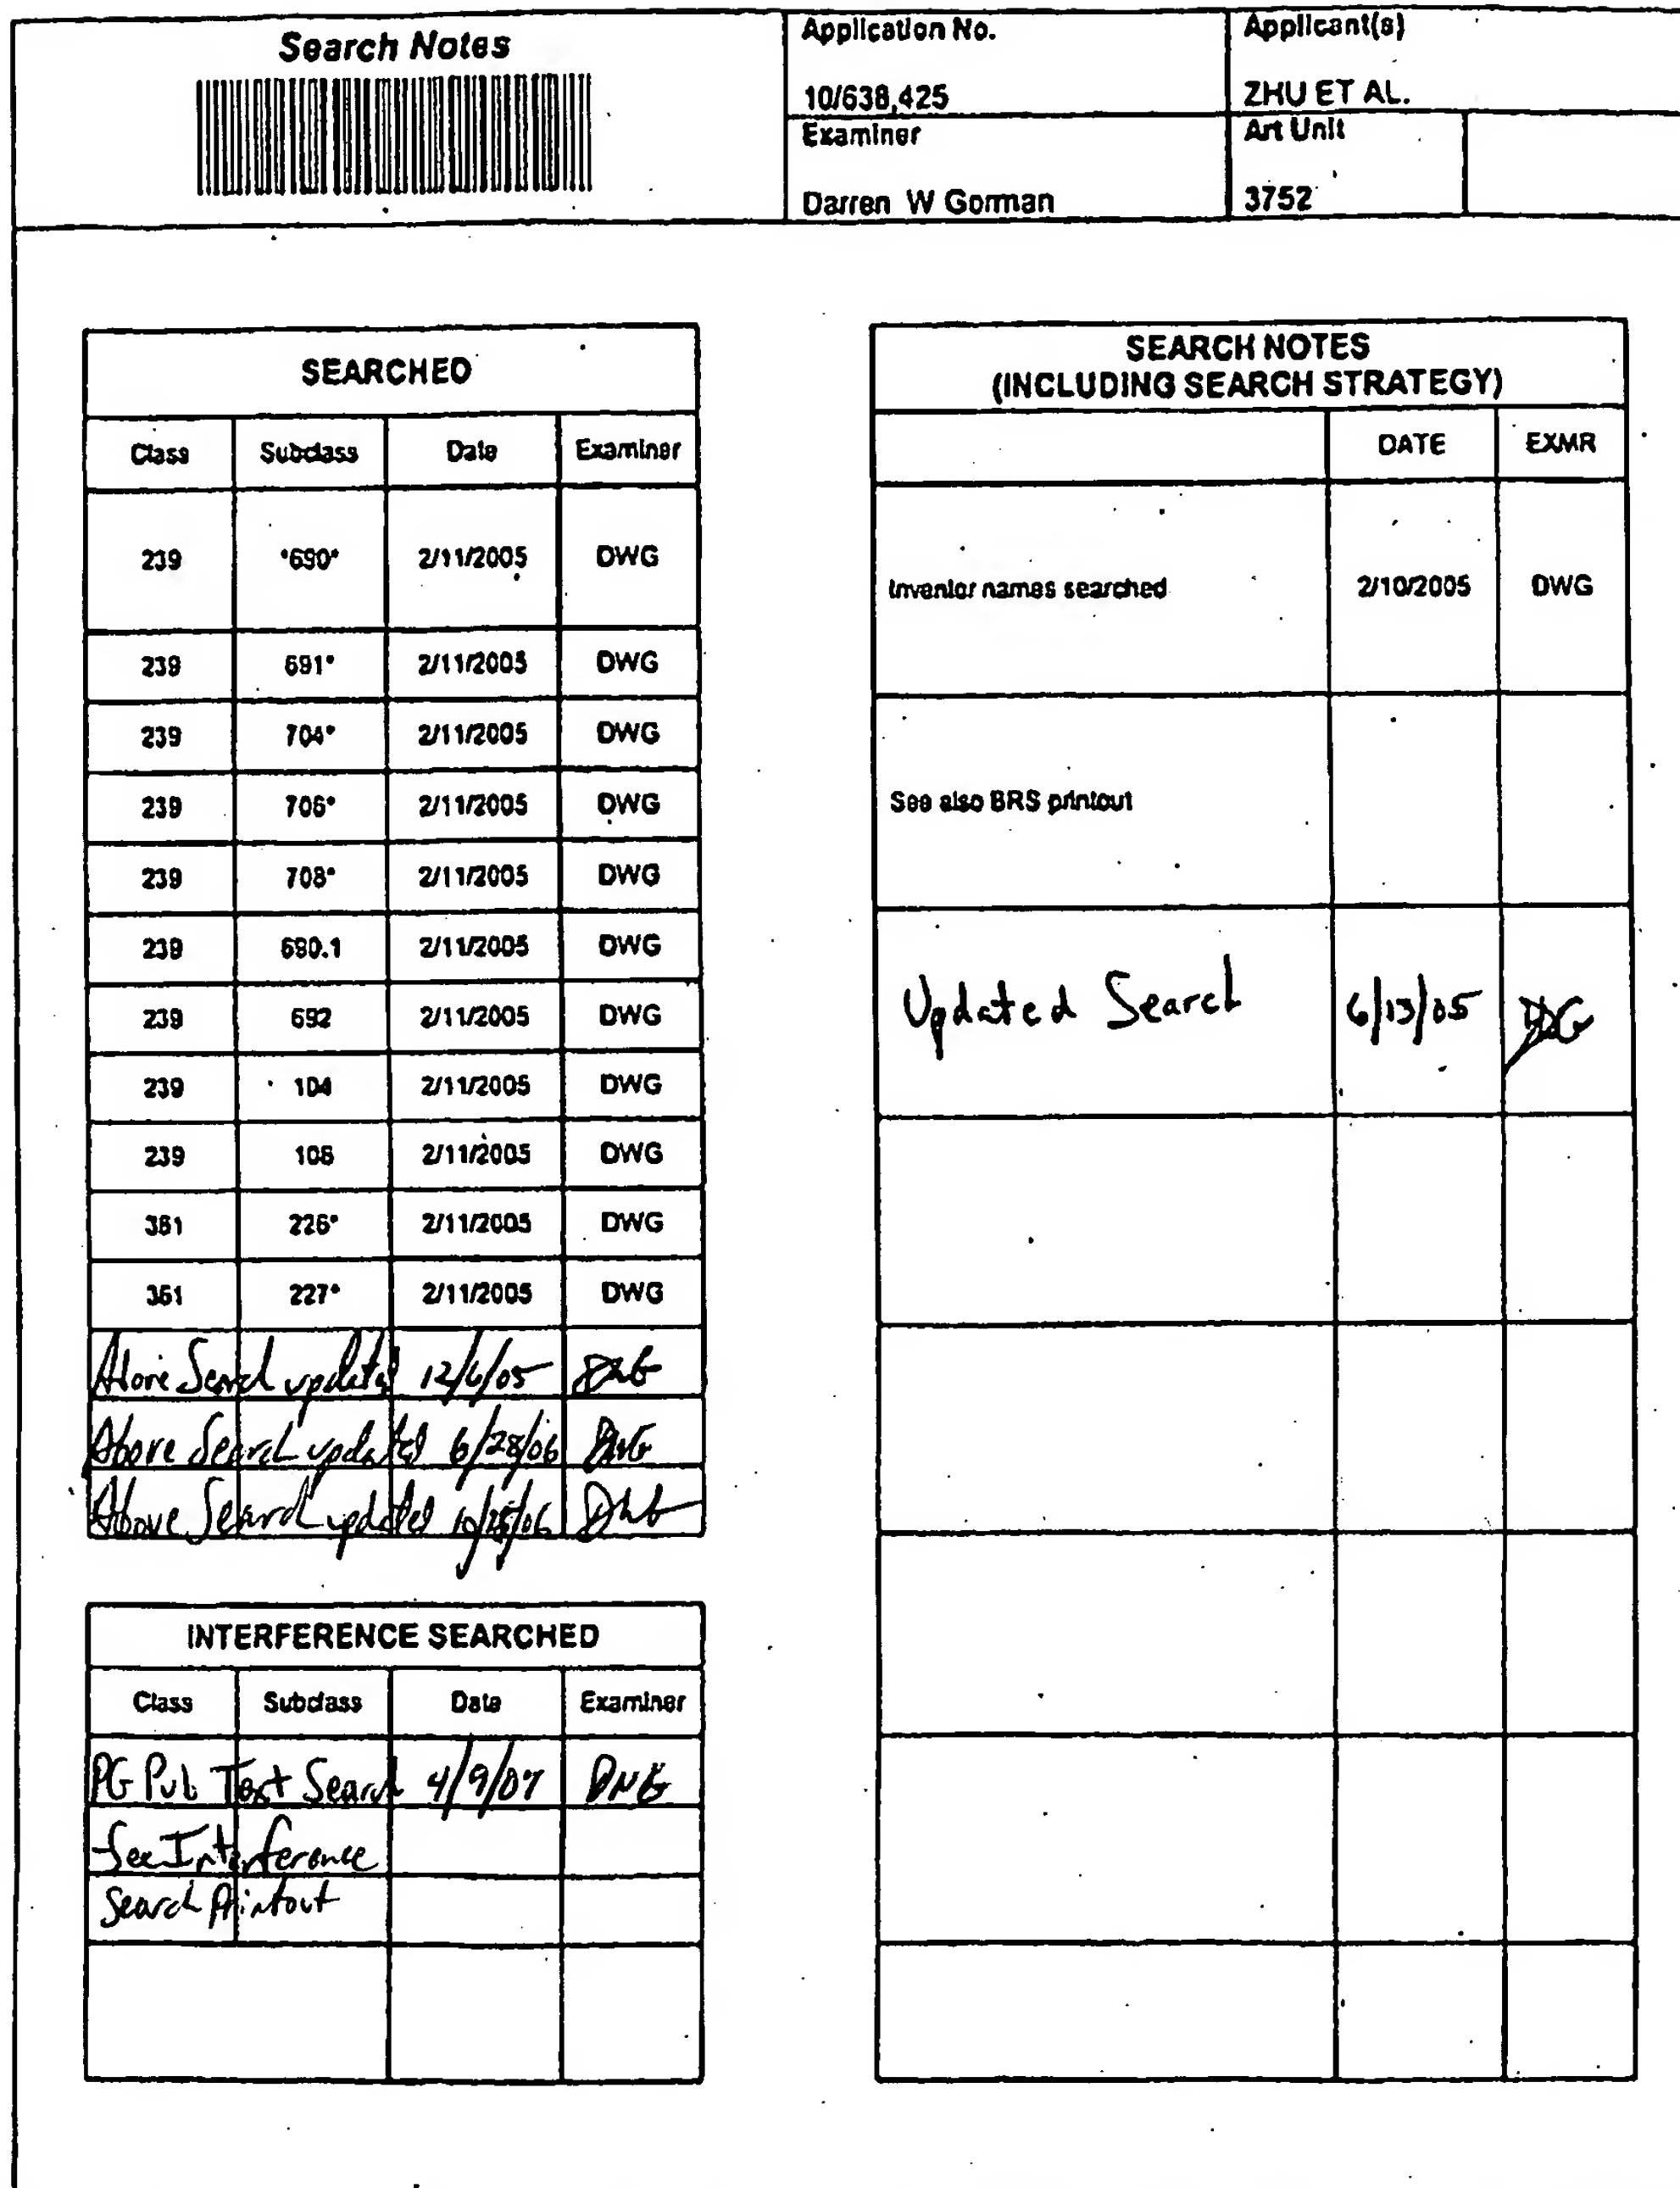 Search Notes
Application No.
10/638,425
Applicant(s)
ZHU ET AL.
Examiner
Darren W Gorman
Art Unit
3752
SEARCHED
Class Subclass Date Examiner
239 *690* 2/11/2005 DWG
239 691* 2/11/2005 DWG
239 704* 2/11/2005 DWG
239 706* 2/11/2005 DWG
239 708* 2/11/2005 DWG
239 690.1 2/11/2005 DWG
239 692 2/11/2005 DWG
239 104 2/11/2005 DWG
239 106 2/11/2005 DWG
361 226* 2/11/2005 DWG
361 227* 2/11/2005 DWG
Above Search updated 12/6/05 DWG
Above Search updated 6/28/06 DWG
Above Search updated DWG
INTERFERENCE SEARCHED
Class Subclass Date Examiner
PG Pub Text Search 4/9/07 DWG
See Interference
Search Printout
SEARCH NOTES
(INCLUDING SEARCH STRATEGY)
DATE EXMR
Inventor names searched 2/10/2005 DWG
See also BRS printout
Updated Search 6/13/05 DWG